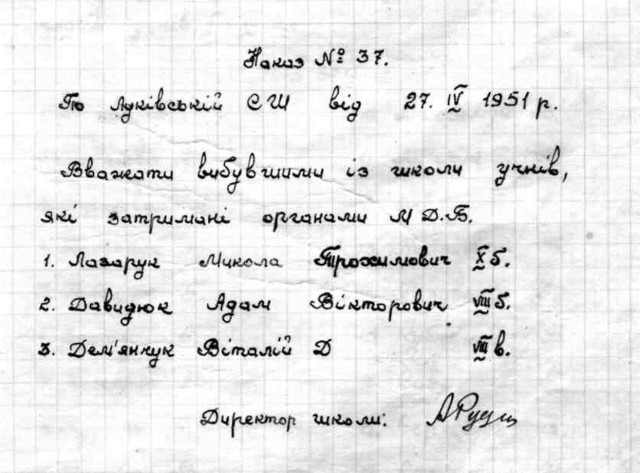 Наказ № 37.
По Луківській СШ від 27. IV 1951 р.
Вважати вибувшими із школи учнів,
які затримані органами М Д.Б.
1. Лазарук Микола Трохимович X б.
2. Давидюк Адам Вікторович VIII б.
3. Дем'янчук Віталій Д VIII в.
Директор школи: